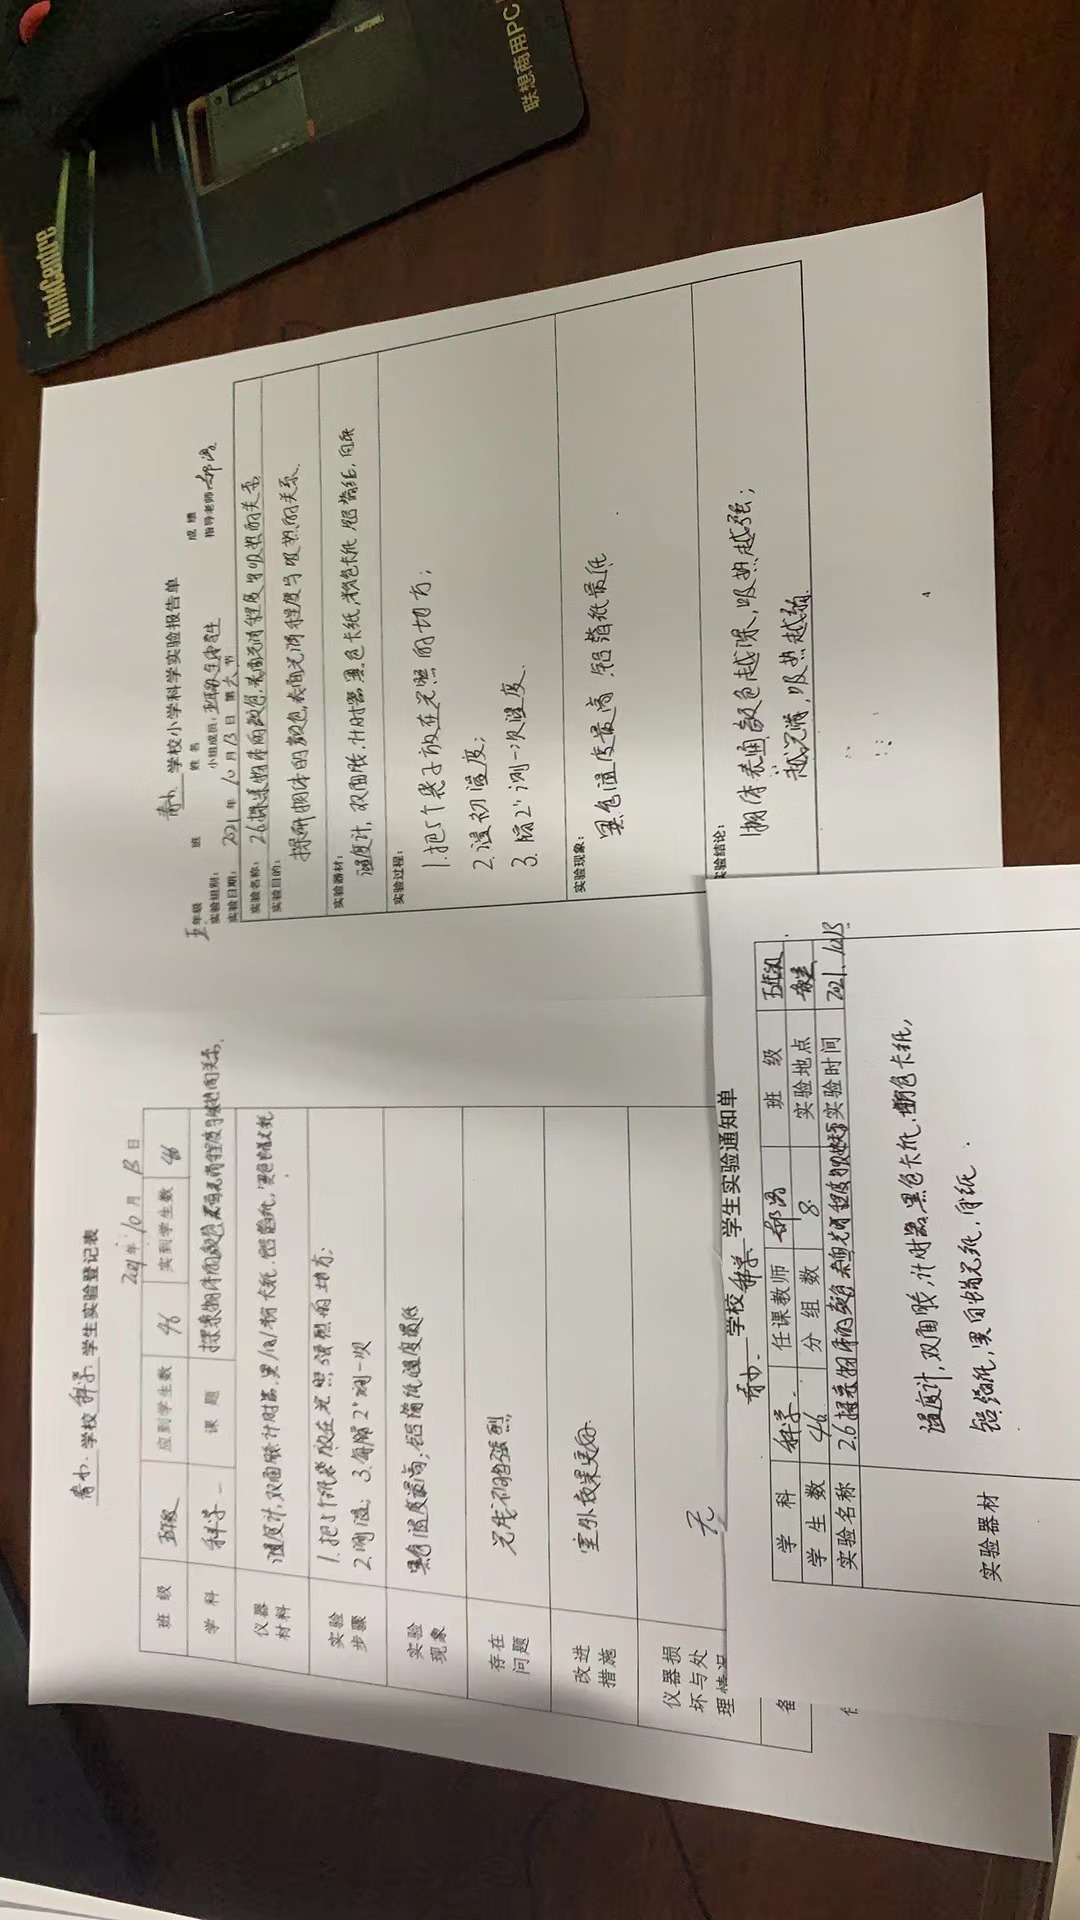 ThinkCentre
联想商用PC
学校小学科学实验报告单
五年级 班 姓名 成绩
实验组别： 小组成员： 指导老师：
实验日期：2021年10月13日 第六节
实验名称：2.6探索物体的颜色，表面光滑程度与吸热的关系
实验目的：
探研物体的颜色，表面光滑程度与吸热的关系.
实验器材：
温度计，双面胶，计时器，黑色卡纸，粉色卡纸，铝箔纸，白纸
实验过程：
1.把5个袋子放在光照的地方；
2.读初温度；
3.隔2'测一次温度.
实验现象：
黑色温度最高 铝箔纸最低
实验结论：
物体表面颜色越深，吸热越强；
越光滑，吸热越弱.
4
学校科学 学生实验登记表
2021年10月13日
班级 五年级 应到学生数 46 实到学生数 46
学科 科学 课题 探索物体的颜色表面光滑程度与吸热的关系.
仪器材料 温度计，双面胶，计时器，黑/白/粉卡纸，铝箔纸，
实验步骤 1.把5个纸袋放在光照强烈的地方；
2.测温； 3.每隔2'测一次
实验现象 黑色温度最高；铝箔纸温度最低
存在问题 光线不够强烈
改进措施 室外效果更好
仪器损坏与处理情况 无
备
学校科学 学生实验通知单
学科 科学 任课教师 班级 五年级
学生数 46 分组数 8 实验地点
实验名称 2.6探索物体的颜色表面光滑程度与吸热 实验时间 2021.10.13
实验器材
温度计，双面胶，计时器，黑色卡纸，粉色卡纸，
铝箔纸，黑色蜡光纸，白纸.